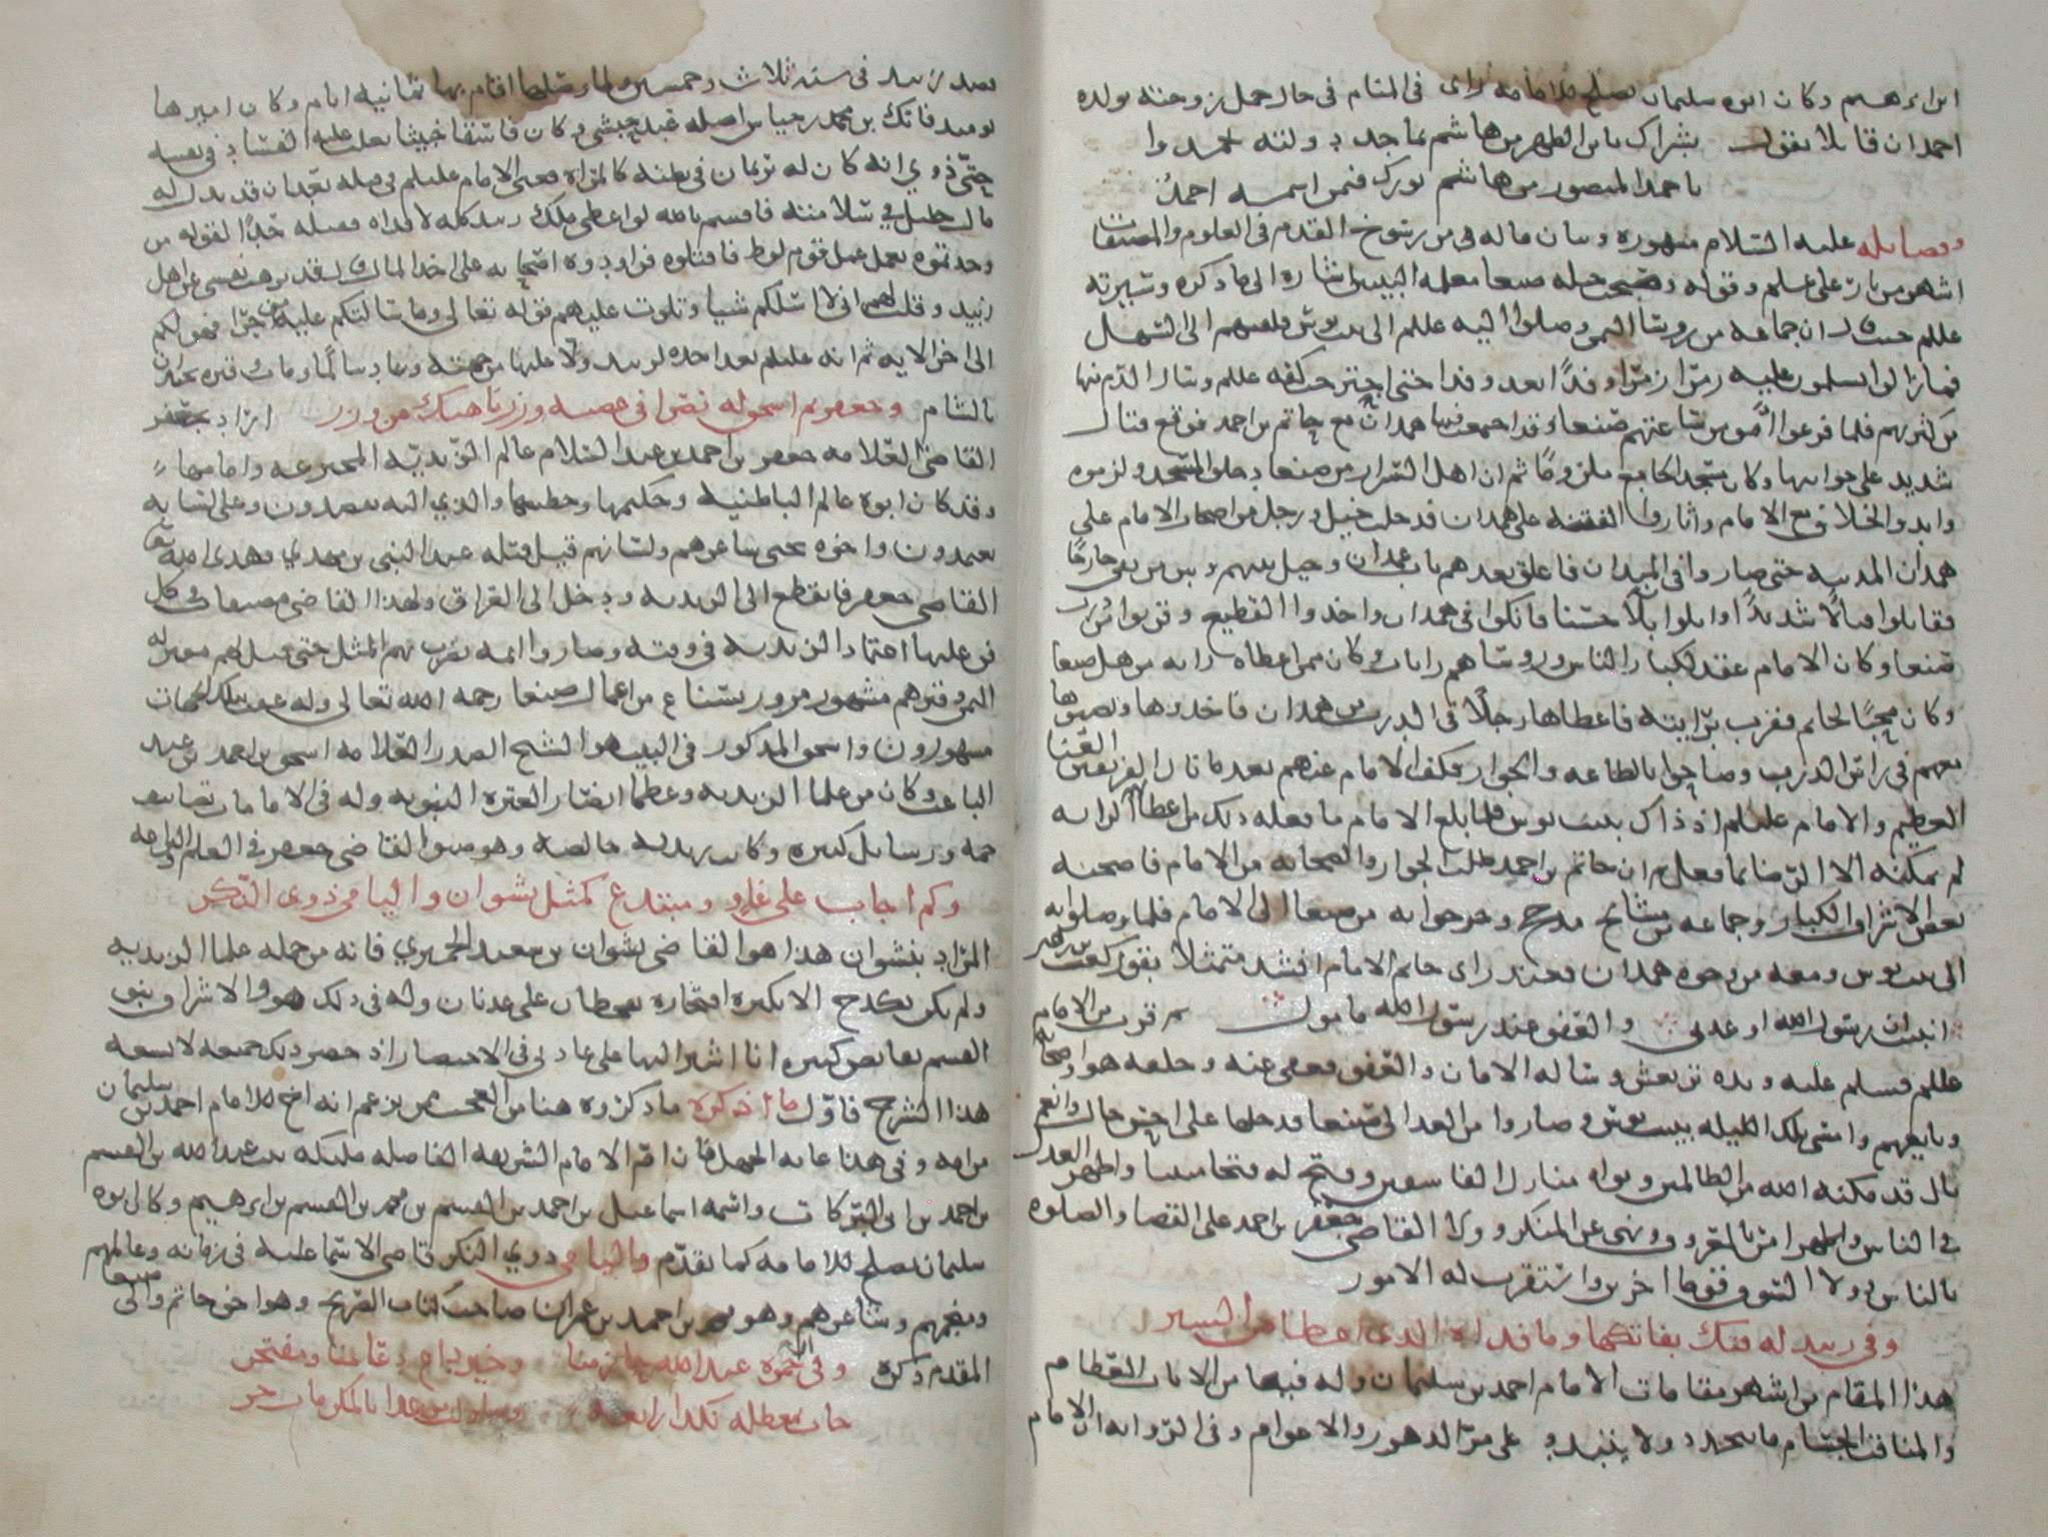 ابن ابرهيم وكان ابوه سليمان يصلح للامامه راى في المنام في حال حمل زوجته بولده
احمد ان قايلا يقول بشراك يا بن الطهر من هاشم بماجد دولته تحمد وا
باحمد المنصور من هاشم بورك فيمن اسمه احمد
وفضايله عليه السلام مشهوره وبيان ماله في من رسوخ القدم في العلوم والمصنفات
اشهر من نار على علم وقوله وصبحت خيله صنعا معلمه البيتين اشاره الى ما ذكره وسيرته
عللم حيث ان جماعه من روسا اليمن وصلوا اليه عللم الى بيت بوس فلقيهم الى السهل
فما زالوا يسلمون عليه زمرا زمرا وفدا بعد وفد احتى كفه عللم وسال الدم منها
من كثرتهم فلما فرغوا امر ساعتهم صنعا وقد اجمعت فيها همدان مع حاتم بن احمد فوقع قتال
شديد على جوانبها وكان مسجد الجامع ملزوما ثم ان اهل السرار من صنعا دخلوا المسجد ولزموه
وابدوا الخلاف مع الامام واثاروا الفتنه على همدان فدخلت خيل ورجل من اصحاب الامام على
همدان المدينه حتى صاروا في الميدان فاغلق بعدهم باب غمدان وحيل بينهم وبين من بقى خارجا
فقاتلوا قتالا شديدا وابلوا بلا حسنا فانكوا في همدان واخذوا القطيع وقربوا
صنعا وكان الامام عقد لكبار الناس وروساهم رايات وكان ممن اعطاه رايه من اهل صنعا
وكان محبا لحاتم فقرب برايته فاعطاها رجلا في الدرب من همدان فاخذوها ونصبوها
بينهم في راس الدرب وصاحوا بالطاعه والجوار فكف الامام عنهم بعد ما نال الفريقين العنا
العظيم والامام عليلم اذ ذاك ببيت بوس فلما بلغ الامام ما فعله ذلك من اعطا الرايه
لم يمكنه الا الرضا بما فعل ثم ان حاتم بن احمد طلب الجوار والصحابه من الامام فاصحبه
بعض الاشراف الكبار وجماعه من مشايخ مذحج وخرجوا به من صنعا الى الامام فلما وصلوا به
الى بيت بوس ومعه من وجوه همدان فحين راى حاتم الامام انشد متمثلا بقول كعب بن زهير
انبيت ان رسول الله اوعدني والعفو عند رسول الله مامول ثم قرب من الامام
عللم فسلم عليه ويده ترتعش وساله الامان والعفو فعفى عنه وحلفه هو واصحابه
وبايعهم وامسى تلك الليله ببيت بوس وصاروا من الغد الى صنعا فدخلها على احسن حال وانعم
بال قد مكنه الله من الظالمين وبواه منازل الفاسقين وفتح له فتحا مبينا واظهر العدل
في الناس واظهر امرا بالمعروف ونهى عن المنكر وولى القاضي جعفر بن احمد على القضا والصلوه
بالناس وولا السوق قوما اخرين واستقرت له الامور
وفي زبيد له فتك بفاتكها وما فداه الذي اعطا من اليسير
هذا المقام من اشهر مقامات الامام احمد بن سليمان وله فيها من الايات العظام
والمناقب الجسام ما يتجدد ولا ينفد على مر الدهور والاعوام وفي الروايه ان الامام
قصد زبيد في سنه ثلاث وخمسين ولما وصلها اقام بها ثمانيه ايام وكان اميرها
يوميد فاتك بن محمد بن جياش اصله عبد حبشي وكان فاسقا خبيثا
حتى ذوي انه كان له ثديان في بطنه كالمراه فعنى الامام عليلم في قتله بعد ان قد بذل له
مال جليل في سلامته فاقسم بالله لو اعطى ملك زبيد كله لافداه فقتله حدا لقوله من
وجدتموه يعمل عمل قوم لوط فاقتلوه فراوده اصحابه على اخذ المال قال لقد نزهت نفسي عن اهل
زبيد وقلت لهم اني لا اسلكم شيا وتلوت عليهم قوله تعالى وما سالتكم عليه من اجر فهو لكم
الى اخر الايه ثم انه عليلم بعد اخذه لزبيد ولا عليها من جهته وعاد سالما ومات قبره بحيدان
بالشام وجعفر ثم اسحق له نصرا في عصبه وزر ناهيك من وزر اراد بجعفر
القاضي العلامه جعفر بن احمد بن عبد السلام عالم الزيديه المخترعه وامامها
وقد كان ابوه عالم الباطنيه وحكيمها وخطيبها والذي اليه يقصدون وعلى لسانه
يعتمدون واخوه يحيى شاعرهم ولسانهم قبل قتله عبد النبي بن مهدي فهدى الله تعا
القاضي جعفر فانقطع الى الزيديه ودخل الى العراق ولهذا القاضي مصنفات في كل
فن عليها اعتماد الزيديه في وقته وصاروا ايمه يضرب بهم المثل حتى قيل لهم معتزله
اليمن وقبرهم مشهور مزور بسناع من اعمال صنعا رحمه الله تعالى وله عقب بتلك الجهات
مشهورون واسحق المذكور في البيت هو الشيخ الصدر العلامه اسحق بن احمد بن عبد
الباعث وكان من علما الزيديه وعظما انصار العتره النبويه وله في الامامات تصانيف
جمه ورسايل كثيره وكان زيديه خالصه وهو صنو القاضي جعفر في العلم والبراعه
وكم اجاب على غاو ومبتدع كمثل نشوان واليامي ذوي النكر
المراد بنشوان هذا هو القاضي نشوان بن سعيد الحميري فانه من جمله علما الزيديه
ولم يكن يقدح الا بكثره افتخاره بقحطان على عدنان وله في ذلك هو والاشراف بني
القسم نقايض كثيره انا اشير اليها على عادتي في الاختصار اذ حصر ذلك جميعه لا يسعه
هذا الشرح فاول ما اذكره ما ذكروه هنا من العجب ممن يزعم انه اخ للامام احمد بن سليمان
من امه وفي هذا غايه الجهل فان ام الامام الشريفه الفاضله مليكه بنت عبد الله بن القسم
بن احمد بن ابي البركات واسمه اسماعيل بن احمد بن القسم بن محمد بن القسم بن ابرهيم وكان ابوه
سليمان يصلح للامامه كما تقدم واليامي ذوي النكر قاضي الاسماعليه في زمانه وعالمهم
ومنجمهم وشاعرهم وهو محمد بن احمد بن عمران صاحب كتاب الصريح وهو اخو حاتم والي صنعا
المقدم ذكره وفي حمزه عبد الله حازمنا وخير داع دعا منا ومفتخر